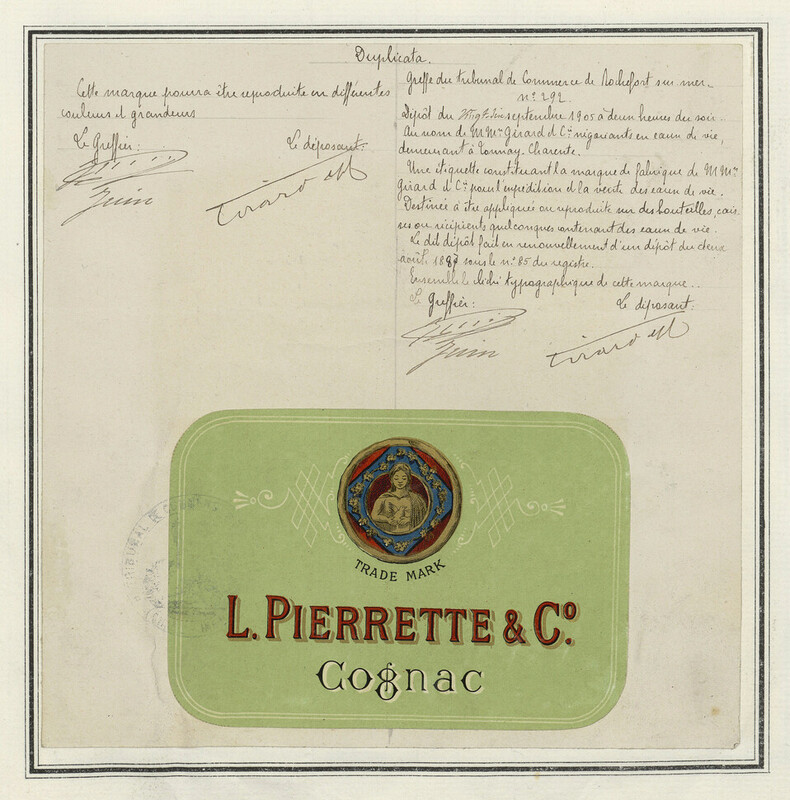 Duplicata.
Cette marque pourra être reproduite en différentes
couleurs et grandeurs
Le Greffier:
Le déposant:
Juin
Girard et
Greffe du tribunal de Commerce de Rochefort sur mer_
nº 292.
Dépôt du vingt-six septembre 1905 à deux heures du soir.
Au nom de MMrs Girard et Cie négociants en eaux de vie,
demeurant à Tonnay-Charente.
Une étiquette constituant la marque de fabrique de MMrs
Girard et Cie pour l'expédition et la vente des eaux de vie.
Destinée à être appliquée ou reproduite sur des bouteilles, cais-
ses ou récipients quelconques contenant des eaux de vie.
Le dit dépôt fait en renouvellement d'un dépôt du deux
août 1887 sous le nº 85 du registre.
Ensemble le cliché typographique de cette marque..
Le Greffier:
Le déposant:
Juin
Girard et
TRIBUNAL DE COMMERCE
TRADE MARK
L. PIERRETTE & Cº.
Cognac